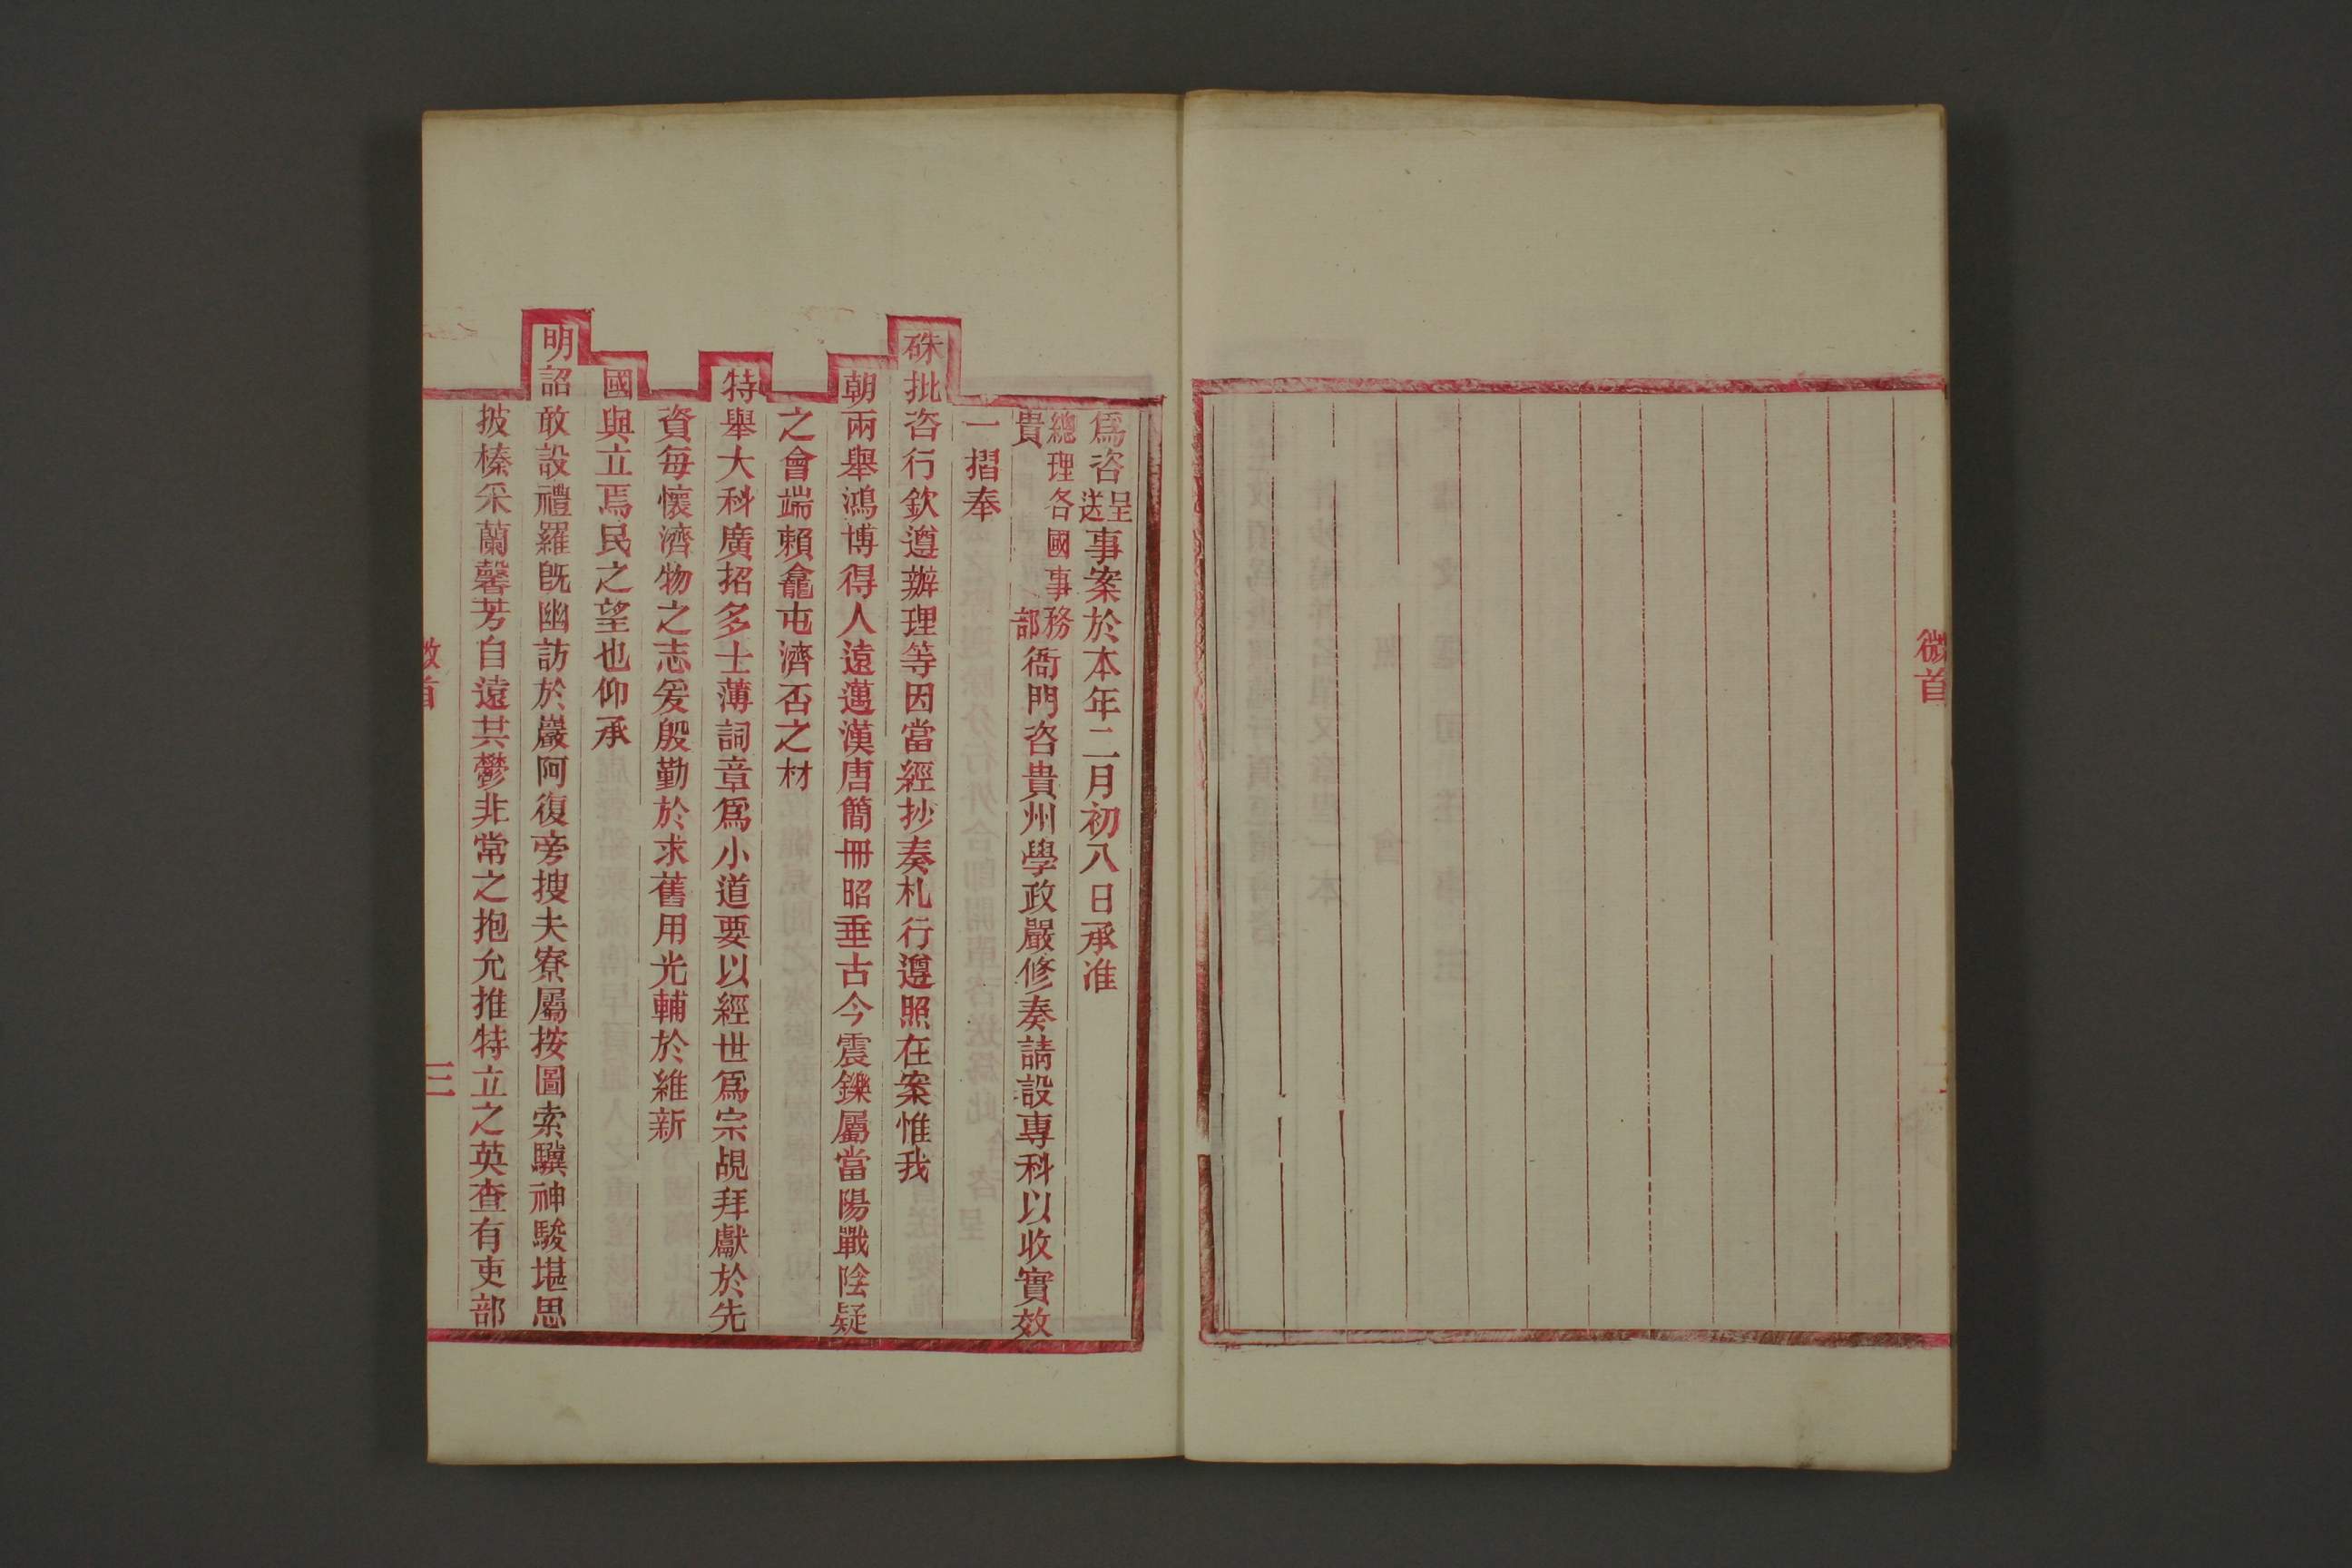 微首
二
爲咨呈送事案於本年二月初八日承准
總理各國事務貴部衙門咨貴州學政嚴修奏請設專科以收實效
一摺奉
硃批咨行欽遵辦理等因當經抄奏札行遵照在案惟我
朝兩舉鴻博得人遠邁漢唐簡冊昭垂古今震鑠屬當陽戰陰疑
之會端賴龕屯濟否之材
特舉大科廣招多士薄詞章爲小道要以經世爲宗覘拜獻於先
資每懷濟物之志爰殷勤於求舊用光輔於維新
國與立焉民之望也仰承
明詔敢設禮羅既幽訪於巖阿復旁搜夫寮屬按圖索驥神駿堪思
披榛采蘭馨芳自遠其鬱非常之抱允推特立之英查有吏部
微首
三